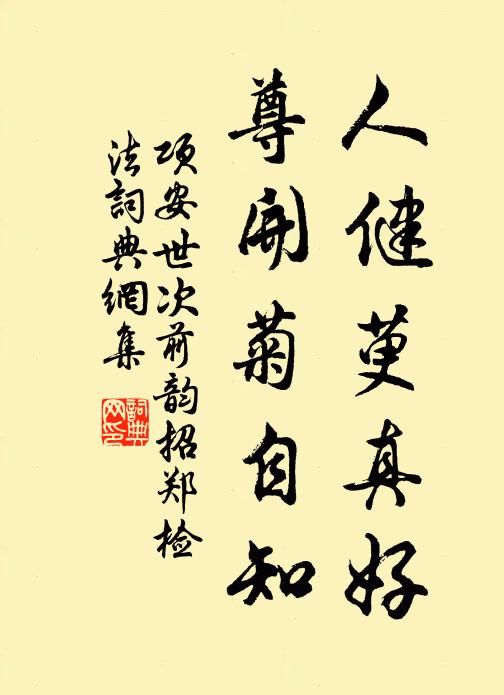 人健萸真好
尊开菊自知
项安世次前韵招郑检
法詞典網集
詞典
网印